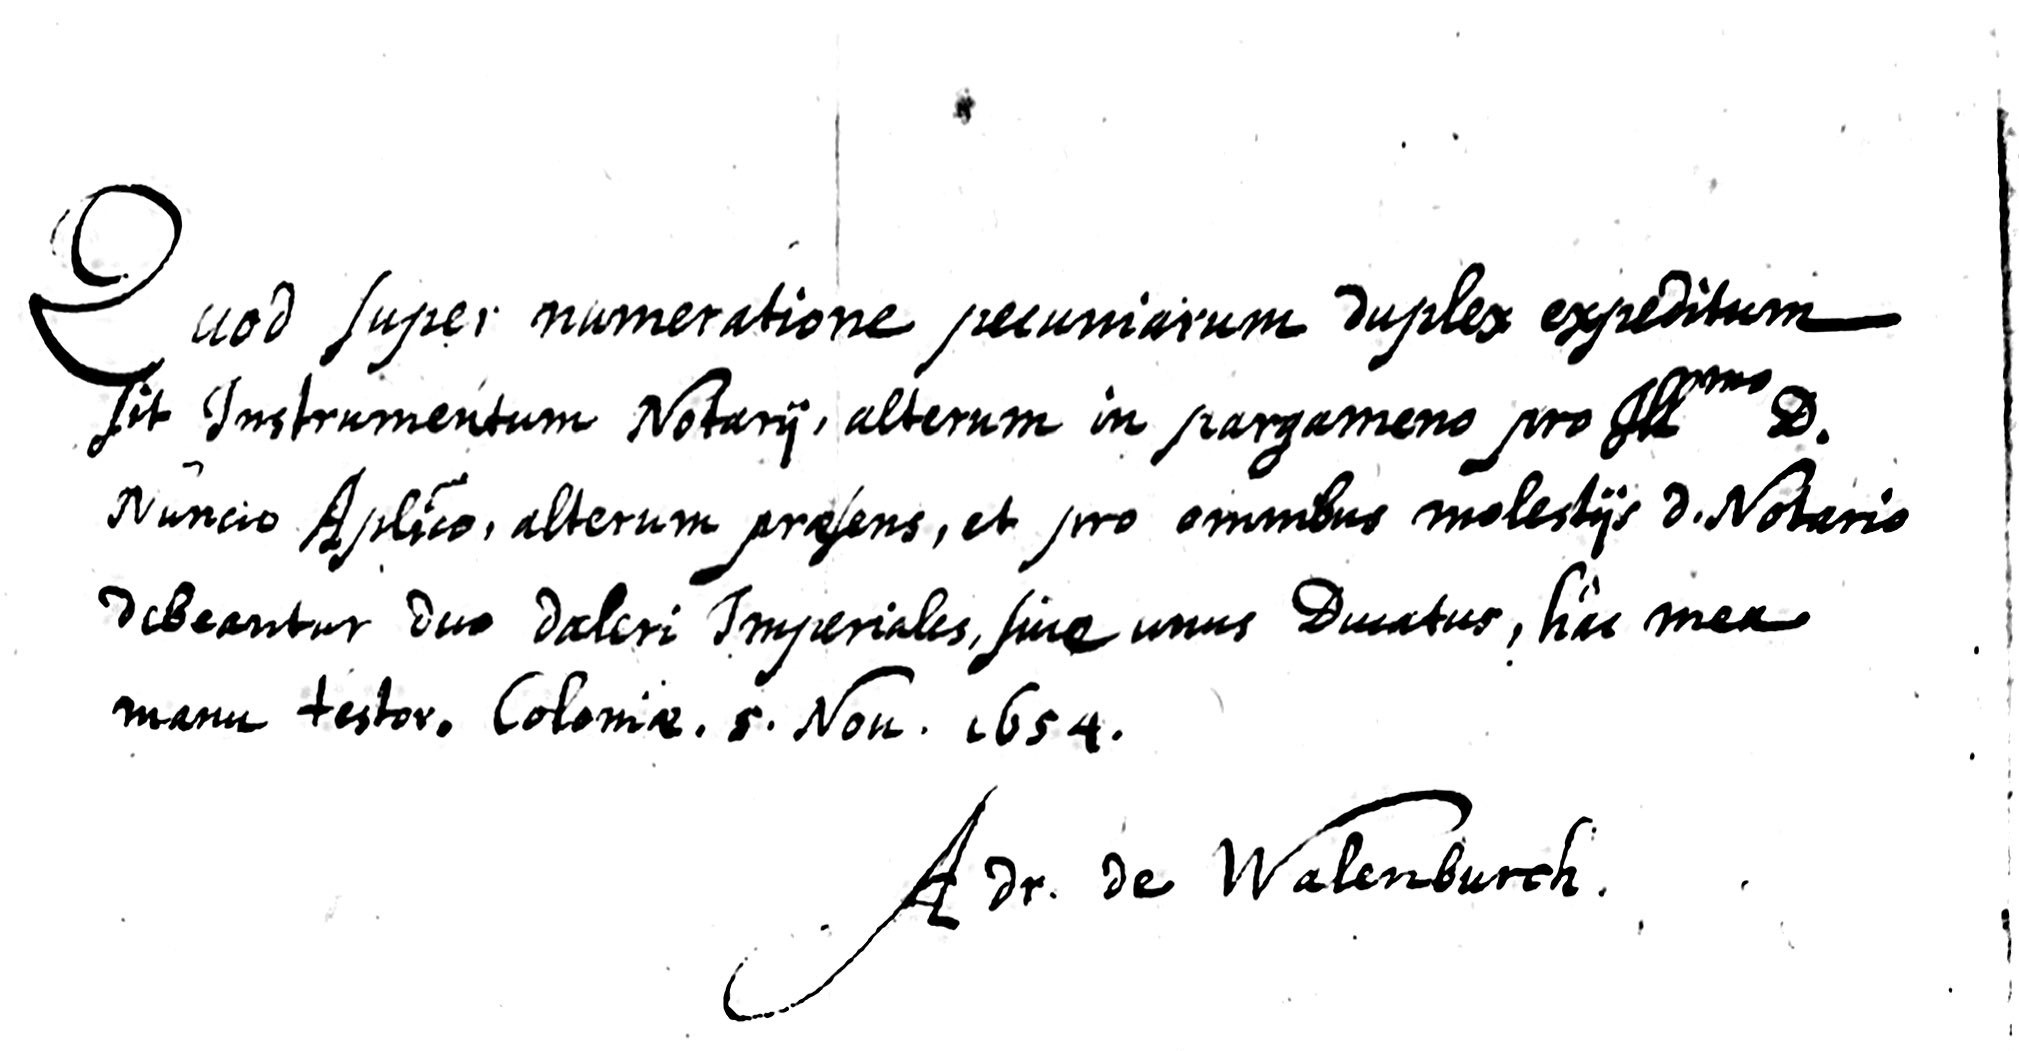 Quod super numeratione pecuniarum duplex expeditum
sit Instrumentum Notarij, alterum in pargameno pro Illmo D.
Nuncio Aplico, alterum præsens, et pro omnibus molestijs d. Notario
debeantur duo daleri Imperiales, siue unus Ducatus, hac mea
manu testor. Coloniæ. 5. Nou. 1654.
Adr. de Walenburch.